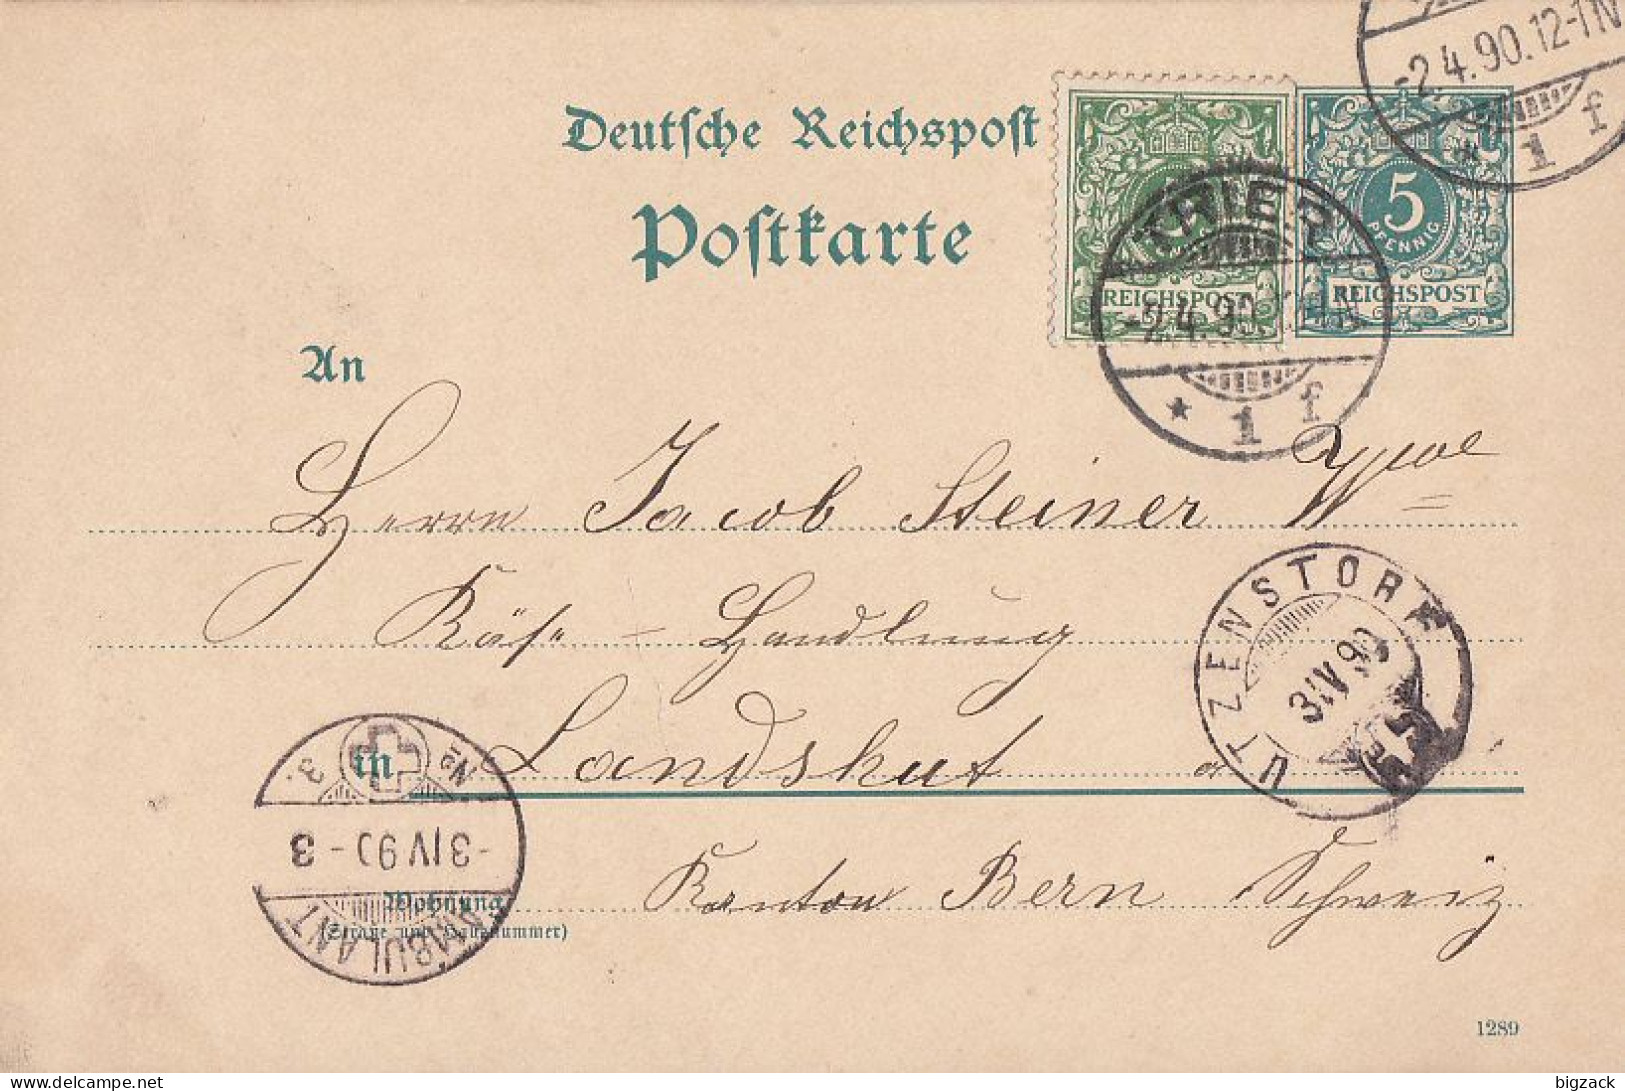 Deutsche Reichspost
Postkarte
5
PFENNIG
REICHSPOST
REICHSPOST
-2.4.90.12-1N
* 1 f
TRIER
-2.4.90
* 1 f
An
Herrn Jacob Steiner Wwe
Käse-Handlung
in Landshut
Kanton Bern Schweiz
Wohnung
(Straße und Hausnummer)
UTZENSTORF
3 IV 90
AMBULANT
-3 IV 90-3
No 3.
1289
delcampe.net
bigzack